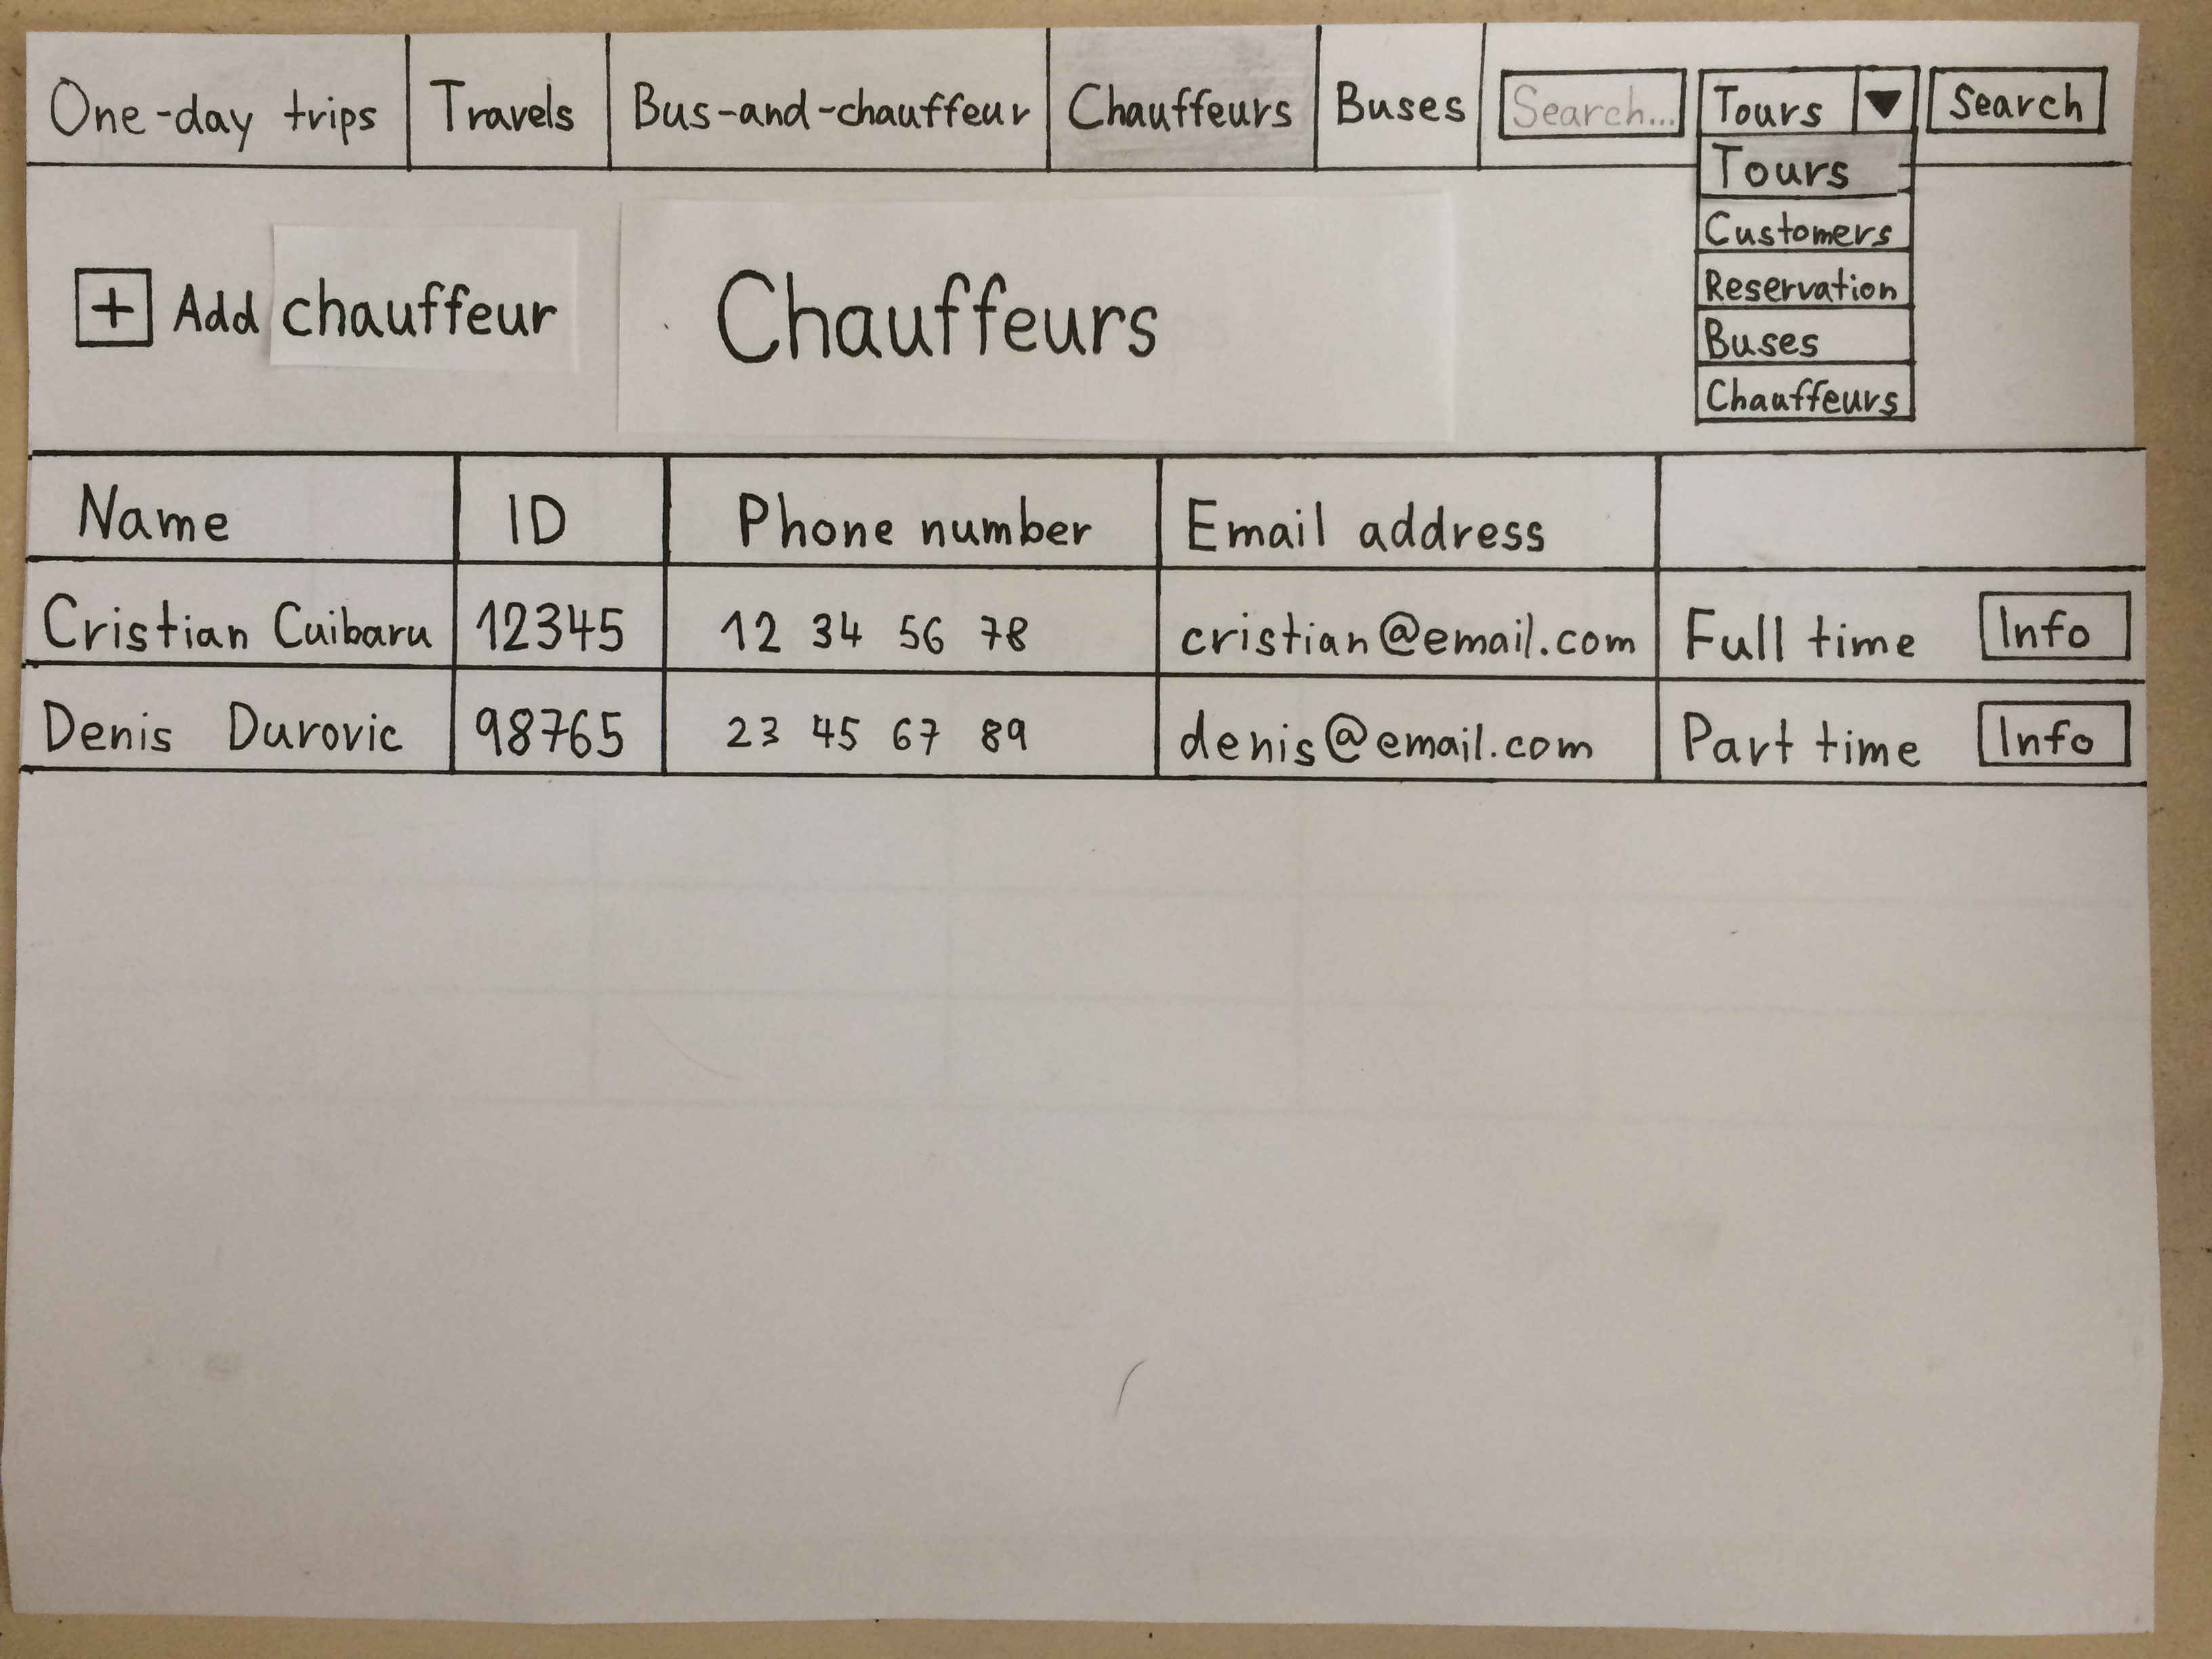 One-day trips Travels Bus-and-chauffeur Chauffeurs Buses Search... Tours ▼ Search
Tours
Customers
Reservation
Buses
Chauffeurs
+ Add chauffeur Chauffeurs
Name ID Phone number Email address
Cristian Cuibaru 12345 12 34 56 78 cristian@email.com Full time Info
Denis Durovic 98765 23 45 67 89 denis@email.com Part time Info